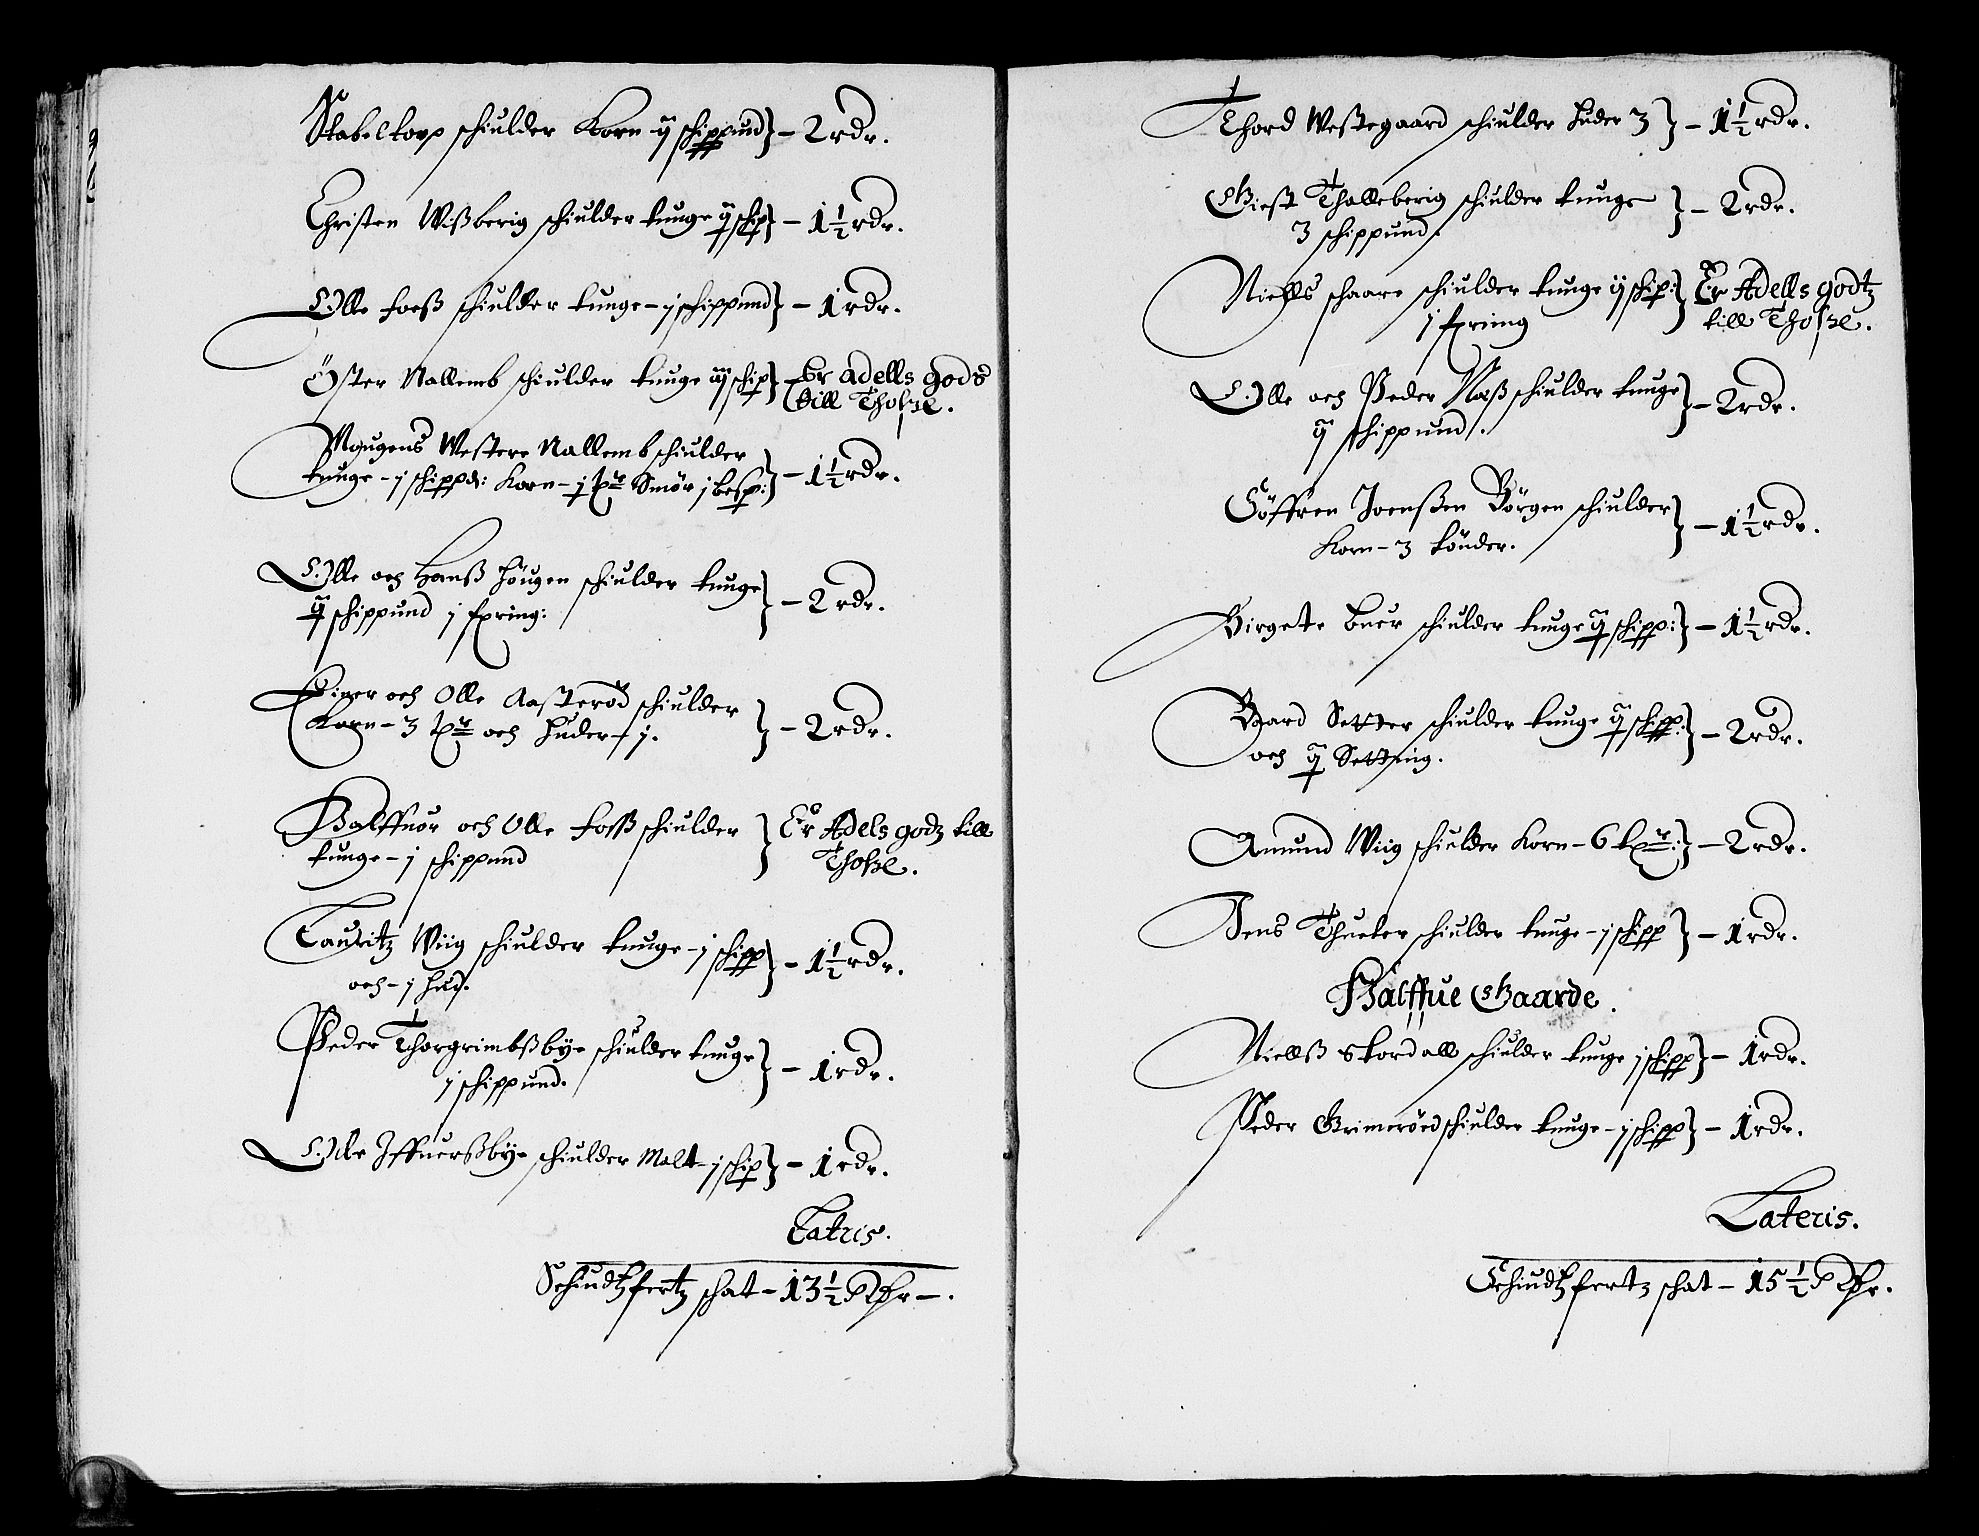 Stabeltorp schiulder Korn - ij schippund} - 2 rdr.
Christen Wißberig schiulder tunge ij schip} - 1½ rdr.
Olle foeß schiulder tunge - j schippund} - 1 rdr.
Öster Nallemb schiulder tunge iij schip} Er adells gods
till Thosze.
Mougens Westere Nallemb schiulder
tunge - j schippd: Korn - j tr Smör j besp:} - 1½ rdr.
Olle och Hanß Höugen schiulder tunge
ij schippund j fxring:} - 2 rdr.
Einer och Olle Aasteröd schiulder
Korn - 3 tr och Huder - j.} - 2 rdr.
Halffuor och Olle foss schiulder} Er Adels godz till
tunge - j schippund
Thosze.
Lauritz Wiig schiulder tunge - j schipp
och - j Hud.} - 1½ rdr.
Peder Thorgrimbßbye schiulder tunge
j schippund.} - 1 rdr.
Olle Iffuerßbye schiulder Malt - j schip} - 1 rdr.
Latris.
Schiudtzfertz schat - 13½ Rdr -.
Thord Westegaard schiulder Huder 3} - 1½ rdr.
Giest Thalleberig schiulder tunge
3 schippund.} - 2 rdr.
Niells schaare schiulder tunge ij schip:} Er Adells godtz
j fxring
till Thosze.
Olle och Peder Næß schiulder tunge
ij schippund.} - 2 rdr.
Göffren Joenßen Börgen schiulder
Korn - 3 tönder.} - 1½ rdr.
Birgete buer schiulder tunge ij schipp:} - 1½ rdr.
Baard Setter schiulder tunge ij schipp:
och ij Setting.} - 2 rdr.
Amund Wiig schiulder Korn - 6 tr:} - 2 rdr.
Jens Thueter schiulder tunge - j schipp} - 1 rdr.
Halffue Gaarde.
Niellß Skordall schiulder tunge j schipp} - 1 rdr.
Peder Grimeröed schiulder tunge - j schipp} - 1 rdr.
Lateris.
Schiudtzfertz schat - 15½ Rdr.